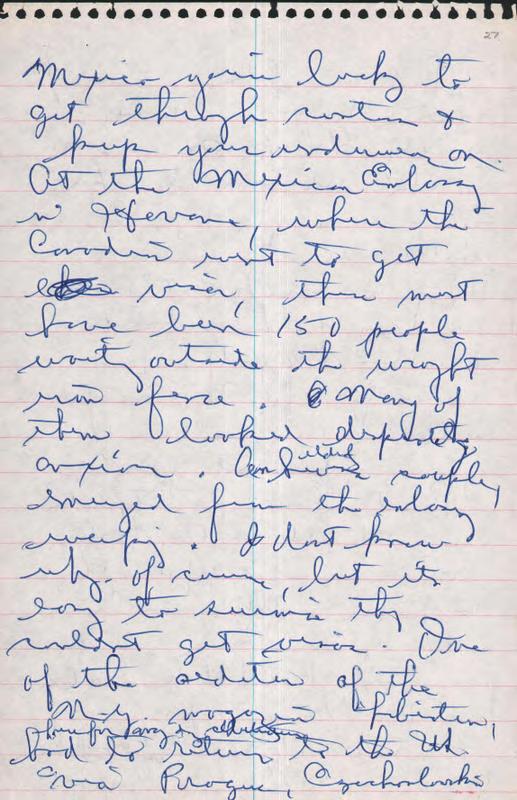 27
Mexico you're lucky to
get through customs &
keep your underwear on.
At the Mexican Embassy
in Havana, where the
Canadians went to get
visas, there must
have been 150 people
waiting outside the wrought
iron fence. Many of
them looked desperately
anxious. An elderly couple
emerged from the embassy
weeping. I don't know
why, of course, but it's
easy to surmise they
couldn't get visas. One
of the editors of the
N.Y. magazine Liberation,
had to return to the US
via Prague, Czechoslovakia